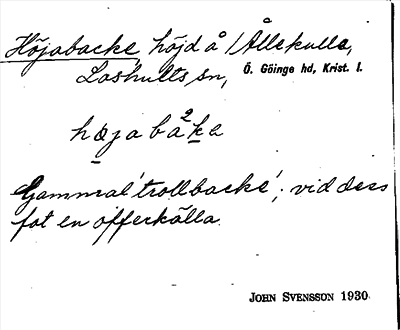 Höjabacke, höjd å Ållskulla,
Loshults sn, Ö. Göinge hd, Krist. l.
höjaba²ke
Gammal 'trollbacke'; vid dess
fot en offerkälla.
JOHN SVENSSON 1930.